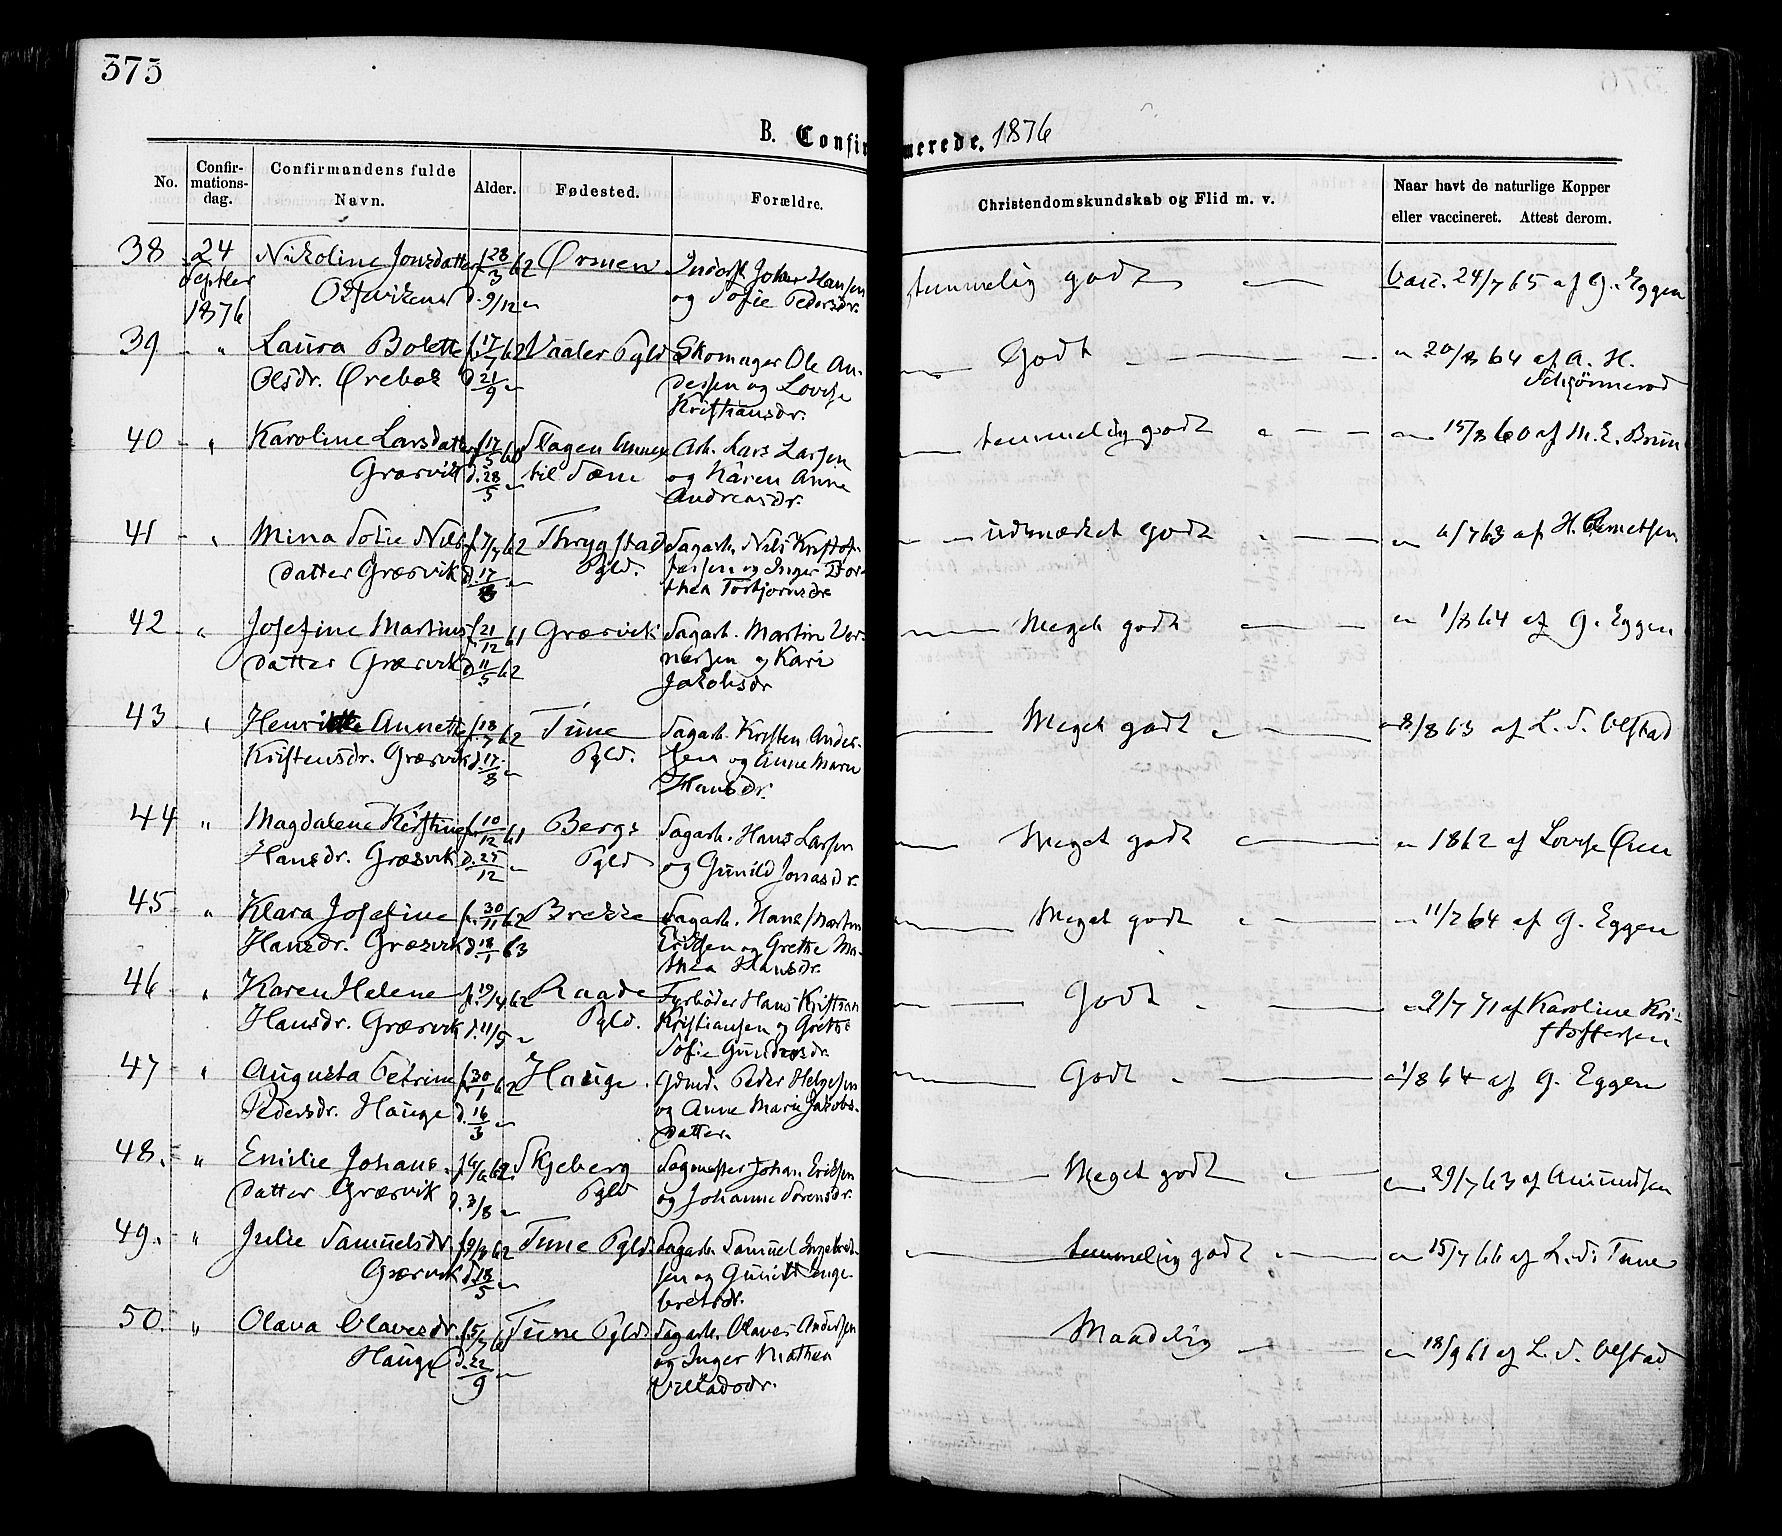 373
B. Confirmerede. 1876
No.
Confir-
mations-
dag.
Confirmandens fulde
Navn.
Alder.
Fødested.
Forældre.
Christendomskundskab og Flid m. v.
Naar havt de naturlige Kopper
eller vaccineret. Attest derom.
38 24 Nikoline Jonsdatter f. 28/3 62 Ørmen Hansen temmelig godt — Vacc. 24/7 65 af G. Eggen
Septbr d. 9/12 og Sofie Pedersdr.
1876
39 " Laura Bolette f. 17/7 62 Vaaler Pgld Skomager Ole An- Godt — 20/8 64 af A. H.
Olsdr. Ørebæk d. 21/9 dersen og Lovise
Kristiansdr.
40 " Karoline Larsdatter f. 17/5 60 Slagen Annex Arb. Lars Larsen temmelig godt — 15/8 60 af M. E. Brun
Græsvik d. 28/5 til Sæm og Karen Anne
Andreasdr.
41 " Mina Sofie Nils- f. 7/7 62 Thrygstad Sagarb. Nils Kristof- udmærket godt — 6/7 63 af H.
datter Græsvik d. 17/8 Pgld. fersen og Inger Dor-
thea Torbjørnsdr
42 " Josefine Martins- f. 21/12 61 Græsvik Sagarb. Martin Ver- Meget godt — 1/8 64 af G. Eggen
datter Græsvik d. 11/5 62 nersen og Kari
Jakobsdr
43 " Henriette Annette f. 18/7 62 Tune Sagarb. Kristen Ander- Meget godt — 8/8 63 af L. S. Olstad
Kristensdr. Græsvik d. 17/8 Pgld. sen og Anne Marie
Hansdr.
44 " Magdalene Kristine f. 10/12 61 Bergs Sagarb. Hans Larsen Meget godt — 1862 af Lovise
Hansdr. Græsvik d. 27/12 Pgld og Gunild Jonasdr.
45 " Klara Josefine f. 30/11 62 Brekke Sagarb. Hans Martin Meget godt — 11/7 64 af G. Eggen
Hansdr. Græsvik d. 18/1 63 Eriksen og Grethe Ma-
thea Hansdr.
46 " Karen Helene f. 19/4 62 Raade Fyrbøder Hans Kristian Godt — 9/7 71 af Karoline Kri-
Hansdr. Græsvik d. 11/5 Pgld. Kristiansen og Grethe stoffersen
Sofie Gundersdr.
47 " Augusta Petrine f. 30/1 62 Hauge. Gdmd. Peder Helgesen Godt — 1/8 64 af G. Eggen
Pedersdr. Hauge d. 16/3 og Anne Marie Jakobs-
datter.
48. " Emilie Johans- f. 6/6 62 Skjeberg Sagmester Johan Eriksen Meget godt — 29/7 63 af Amundsen
datter Græsvik d. 3/8 Pgld og Johanne Sørensdr.
49. " Julie Samuelsdr. f. 9/3 62 Tune Pgld. Sagarb. Samuel Ingebret- temmelig godt — 15/7 66 af L. S. Tune
Græsvik d. 18/5 sen og Gunild Inge-
bretsdr.
50. " Olava Olavesdr. f. 5/7 61 Tune Pgld. Sagarb. Olaves Andersen Maadelig — 18/9 61 af L. S. Olstad
Hauge d. 22/9 og Inger Mathea
Villadsdr.